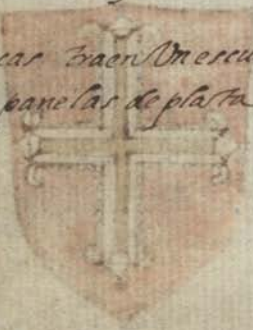 cas traen Un escu
panelas de plata